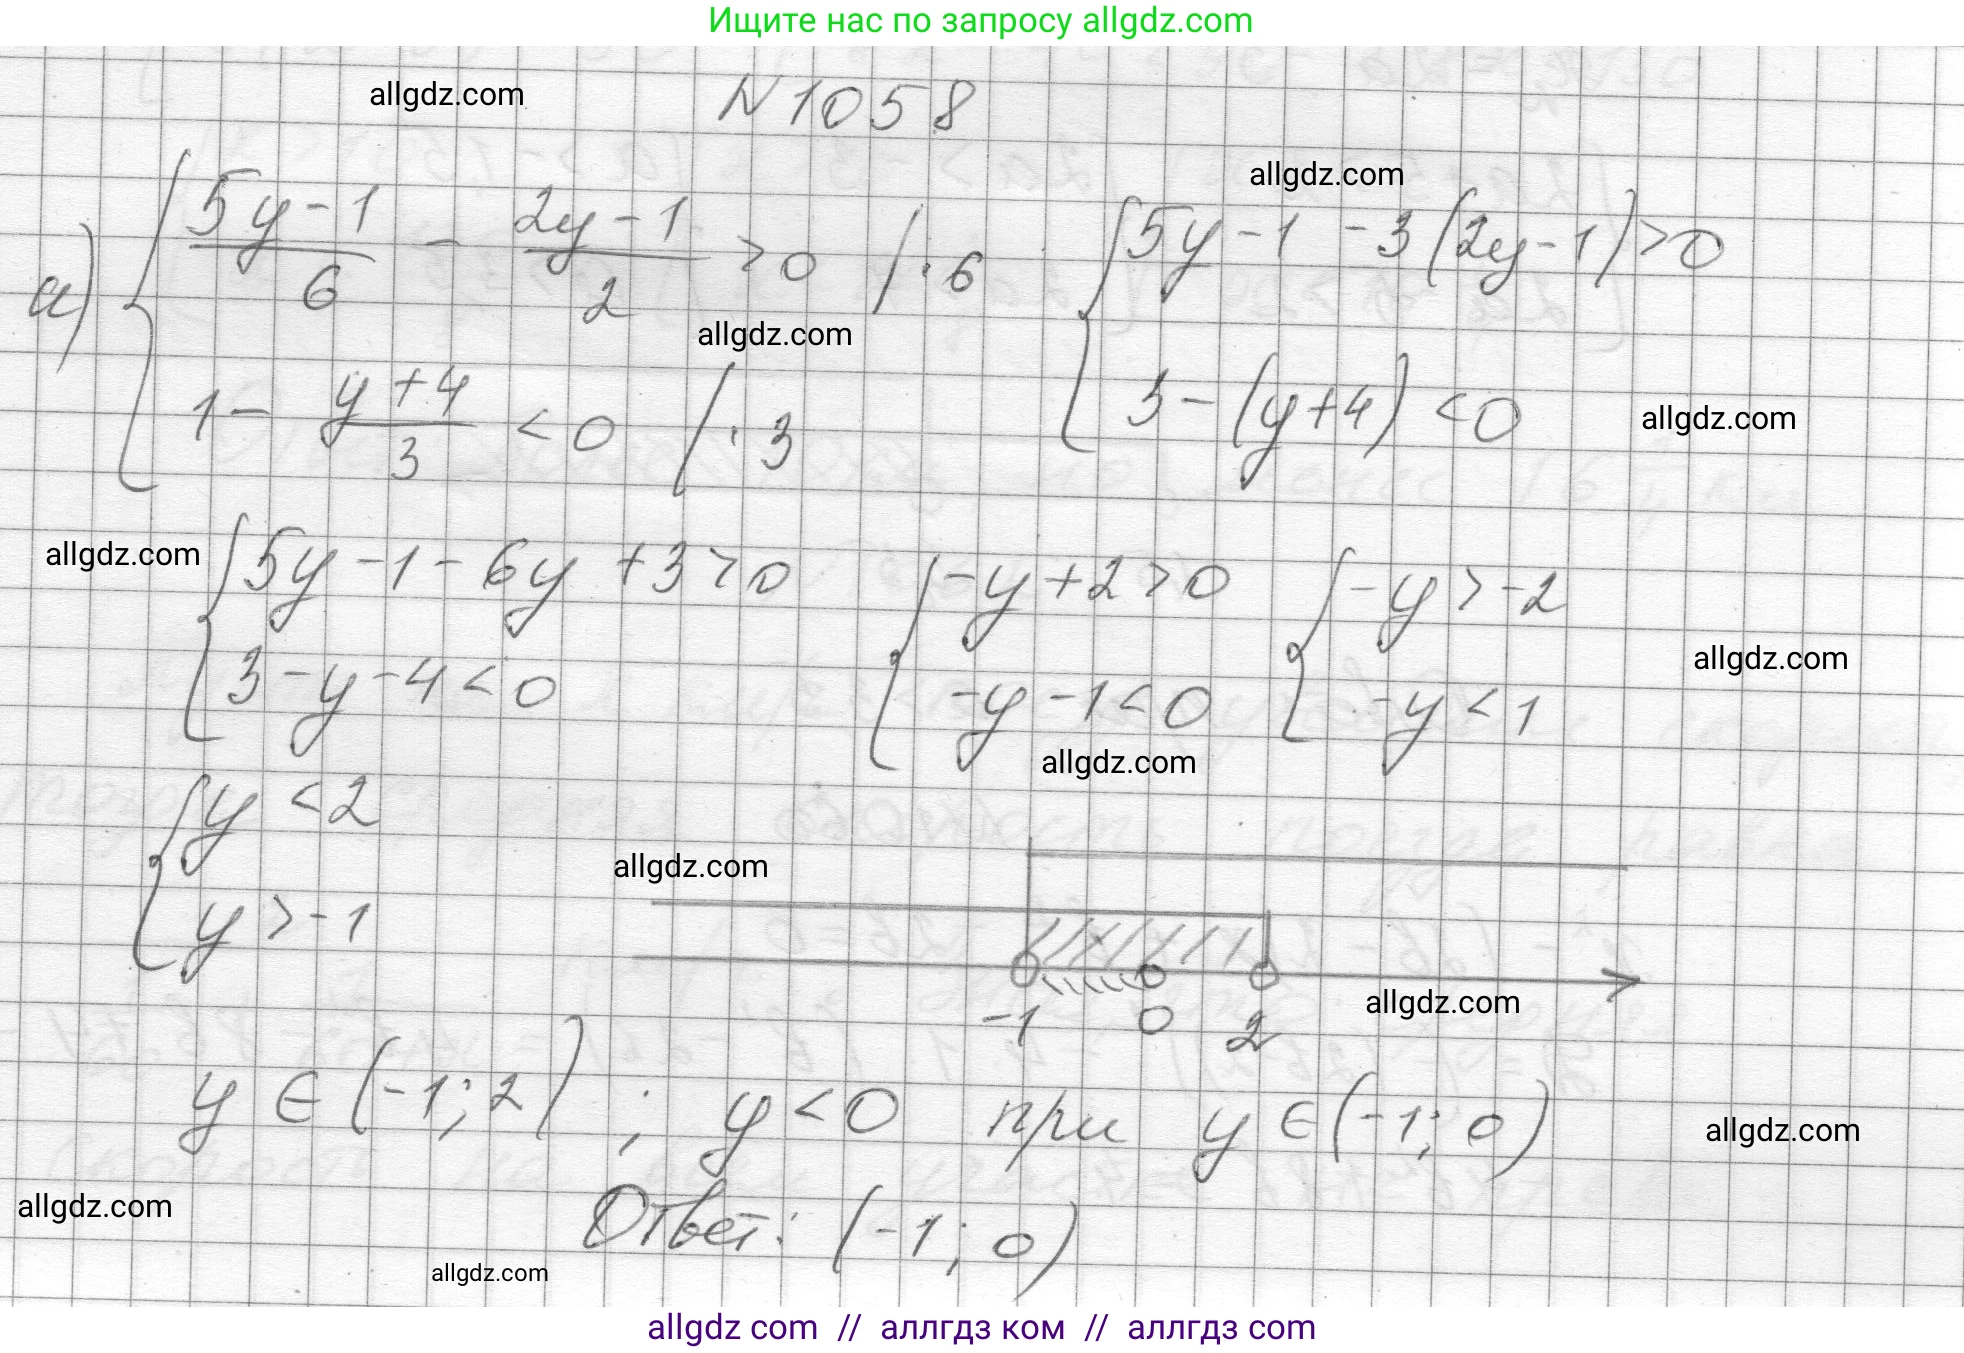 Ищите нас по запросу allgdz.com
allgdz.com
N 1058
allgdz.com
а) { (5y-1)/6 - (2y-1)/2 > 0 | ·6
1 - (y+4)/3 < 0 | ·3
{ 5y-1 -3(2y-1)>0
3-(y+4)<0
allgdz.com
allgdz.com
allgdz.com
{ 5y-1-6y+3>0
3-y-4<0
{ -y+2>0
-y-1<0
{ -y>-2
-y<1
allgdz.com
allgdz.com
{ y<2
y>-1
allgdz.com
-1 0 2
allgdz.com
y ∈ (-1; 2) ; y<0 при y ∈ (-1; 0)
allgdz.com
allgdz.com
Ответ: (-1; 0)
allgdz.com
allgdz com // аллгдз ком // аллгдз com